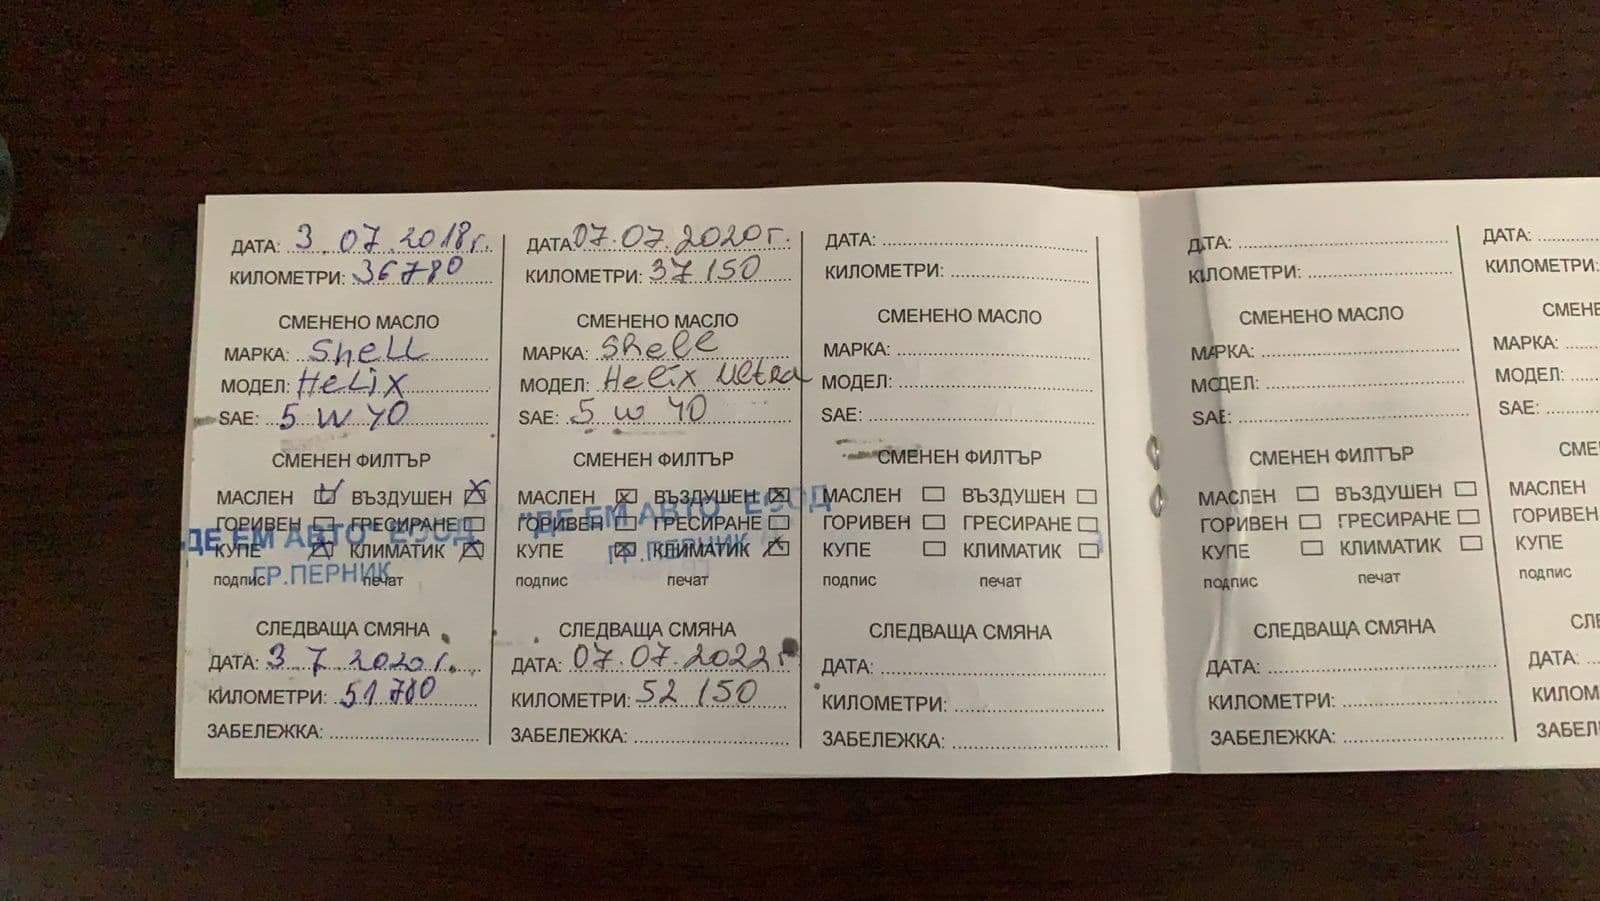 ДАТА: 3.07.2018г.
КИЛОМЕТРИ: 36780
СМЕНЕНО МАСЛО
МАРКА: Shell
МОДЕЛ: Helix
SAE: 5 W 40
СМЕНЕН ФИЛТЪР
МАСЛЕН ВЪЗДУШЕН
ГОРИВЕН ГРЕСИРАНЕ
"ДЕ ЕМ АВТО" ЕООД
КУПЕ КЛИМАТИК
ГР.ПЕРНИК
подпис печат
СЛЕДВАЩА СМЯНА
ДАТА: 3.7.2020г.
КИЛОМЕТРИ: 51780
ЗАБЕЛЕЖКА:
ДАТА 07.07.2020г.
КИЛОМЕТРИ: 37150
СМЕНЕНО МАСЛО
МАРКА: Shell
МОДЕЛ: Helix Ultra
SAE: 5 W 40
СМЕНЕН ФИЛТЪР
МАСЛЕН ВЪЗДУШЕН
"ДЕ ЕМ АВТО" ЕООД
ГОРИВЕН ГРЕСИРАНЕ
КУПЕ КЛИМАТИК
ГР.ПЕРНИК
подпис печат
СЛЕДВАЩА СМЯНА
ДАТА: 07.07.2022г
КИЛОМЕТРИ: 52150
ЗАБЕЛЕЖКА:
ДАТА:
КИЛОМЕТРИ:
СМЕНЕНО МАСЛО
МАРКА:
МОДЕЛ:
SAE:
СМЕНЕН ФИЛТЪР
МАСЛЕН ВЪЗДУШЕН
ГОРИВЕН ГРЕСИРАНЕ
КУПЕ КЛИМАТИК
подпис печат
СЛЕДВАЩА СМЯНА
ДАТА:
КИЛОМЕТРИ:
ЗАБЕЛЕЖКА:
ДАТА:
КИЛОМЕТРИ:
СМЕНЕНО МАСЛО
МАРКА:
МОДЕЛ:
SAE:
СМЕНЕН ФИЛТЪР
МАСЛЕН ВЪЗДУШЕН
ГОРИВЕН ГРЕСИРАНЕ
КУПЕ КЛИМАТИК
подпис печат
СЛЕДВАЩА СМЯНА
ДАТА:
КИЛОМЕТРИ:
ЗАБЕЛЕЖКА:
ДАТА:
КИЛОМЕТРИ:
СМЕНЕ
МАРКА:
МОДЕЛ:
SAE:
СМЕ
МАСЛЕН
ГОРИВЕН
КУПЕ
подпис
СЛЕ
ДАТА:
КИЛОМ
ЗАБЕЛ